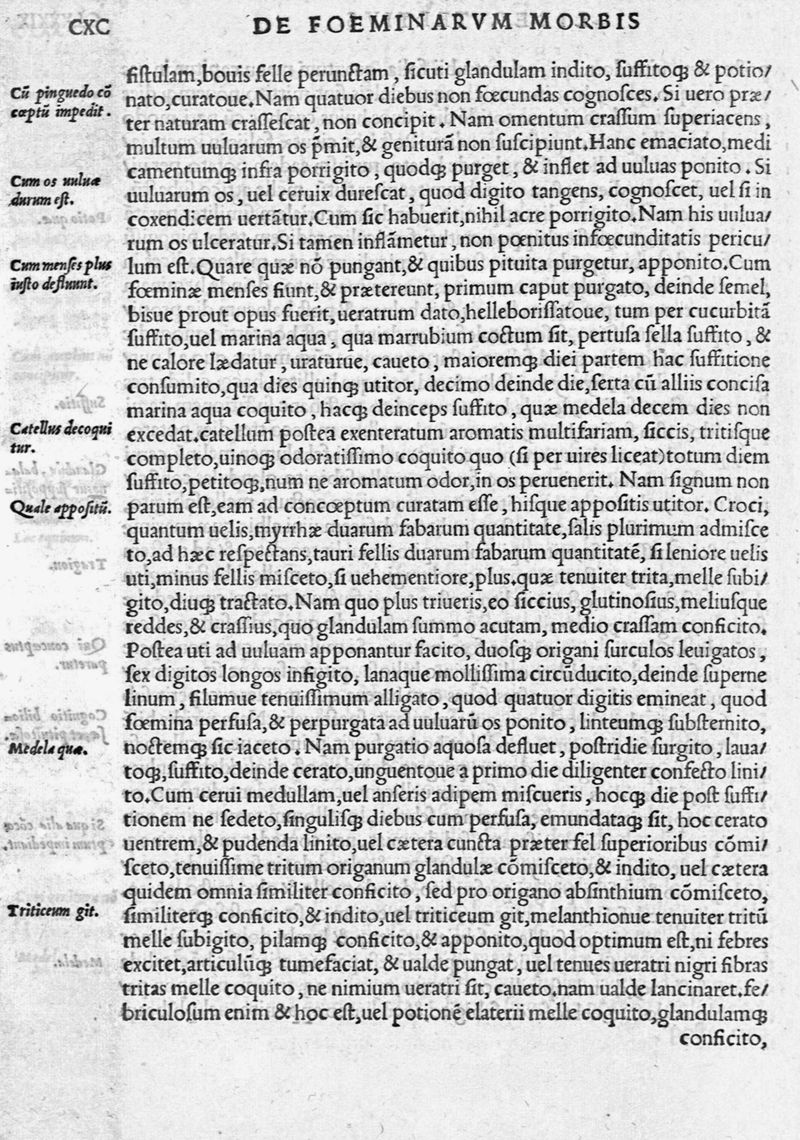 CXC
DE FOEMINARVM MORBIS
fistulam,bouis felle perunctam, sicuti glandulam indito, suffitoqꝫ & potio/
Cū pinguedo cō
nato,curatoue.Nam quatuor diebus non fœcundas cognosces. Si uero præ/
cœptū impedit.
ter naturam crassescat, non concipit. Nam omentum crassum superiacens,
multum uuluarum os p̄mit,& geniturā non suscipiunt.Hanc emaciato,medi
camentumqꝫ infra porrigito, quodqꝫ purget, & inflet ad uuluas ponito. Si
Cum os uuluæ
durum est.
uuluarum os, uel ceruix durescat, quod digito tangens, cognoscet, uel si in
coxendicem uertātur.Cum sic habuerit,nihil acre porrigito.Nam his uulua/
rum os ulceratur.Si tamen inflāmetur, non pœnitus infœcunditatis pericu/
Cum menses plus
iusto defluunt.
lum est.Quare quæ nō pungant,& quibus pituita purgetur, apponito.Cum
fœminæ menses fiunt,& prætereunt, primum caput purgato, deinde semel,
bisue prout opus fuerit,ueratrum dato,helleborissatoue, tum per cucurbitā
suffito,uel marina aqua, qua marrubium coctum sit, pertusa sella suffito, &
ne calore lædatur, uraturue, caueto, maioremqꝫ diei partem hac suffitione
consumito,qua dies quinqꝫ utitor, decimo deinde die,serta cū alliis concisa
marina aqua coquito, hacqꝫ deinceps suffito, quæ medela decem dies non
Catellus decoqui
tur.
excedat.catellum postea exenteratum aromatis multifariam, siccis, tritisque
completo,uinoqꝫ odoratissimo coquito quo (si per uires liceat)totum diem
suffito,petitoqꝫ,num ne aromatum odor,in os peruenerit. Nam signum non
Quale appositū.
parum est,eam ad concœptum curatam esse, hisque appositis utitor. Croci,
quantum uelis,myrrhæ duarum fabarum quantitate,salis plurimum admisce
to,ad hæc respectans,tauri fellis duarum fabarum quantitatē, si leniore uelis
uti,minus fellis misceto,si uehementiore,plus.quæ tenuiter trita,melle subi/
gito,diuqꝫ tractato.Nam quo plus triueris,eo siccius, glutinosius,meliusque
reddes,& crassius,quo glandulam summo acutam, medio crassam conficito.
Postea uti ad uuluam apponantur facito, duosqꝫ origani surculos leuigatos,
sex digitos longos infigito, lanaque mollissima circūducito,deinde superne
linum, filumue tenuissimum alligato, quod quatuor digitis emineat, quod
fœmina perfusa,& perpurgata ad uuluarū os ponito, linteumqꝫ substernito,
Medela quæ.
noctemqꝫ sic iaceto. Nam purgatio aquosa defluet, postridie surgito, laua/
toqꝫ,suffito,deinde cerato,unguentoue a primo die diligenter confecto lini/
to.Cum cerui medullam,uel anseris adipem miscueris, hocqꝫ die post suffi/
tionem ne sedeto,singulisqꝫ diebus cum perfusa, emundataqꝫ sit, hoc cerato
uentrem,& pudenda linito,uel cætera cuncta præter fel superioribus cōmi/
sceto,tenuissime tritum origanum glandulæ cōmisceto,& indito, uel cætera
quidem omnia similiter conficito, sed pro origano absinthium cōmisceto,
Triticeum git.
similiterqꝫ conficito,& indito,uel triticeum git,melanthionue tenuiter tritū
melle subigito, pilamqꝫ conficito,& apponito,quod optimum est,ni febres
excitet,articulūqꝫ tumefaciat, & ualde pungat, uel tenues ueratri nigri fibras
tritas melle coquito, ne nimium ueratri sit, caueto.nam ualde lancinaret.fe/
briculosum enim & hoc est,uel potionē elaterii melle coquito,glandulamqꝫ
conficito,